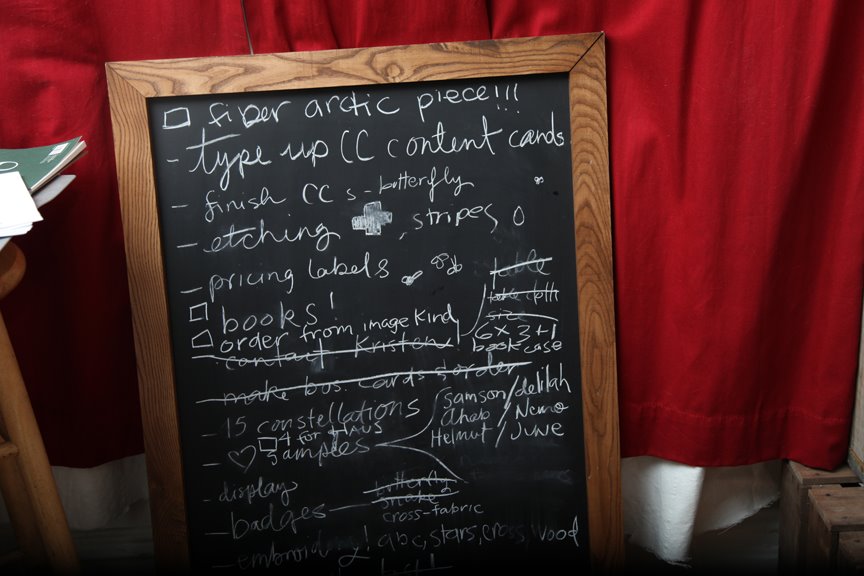 fiber arctic piece!!!
- type up CC content cards
- finish CC s - butterfly
- etching , stripes
- pricing labels
books!
order from image kind
contact Kristen
make bus. cards & order
table
table cloth
size
6 x 3 + 1
book case
- 15 constellations
4 for HAUS
- samples
samson / delilah
Ahab / Nemo
Helmut / June
- display
- badges - butterfly
snake
cross-fabric
- embroidery! abc, stars, cross, wood